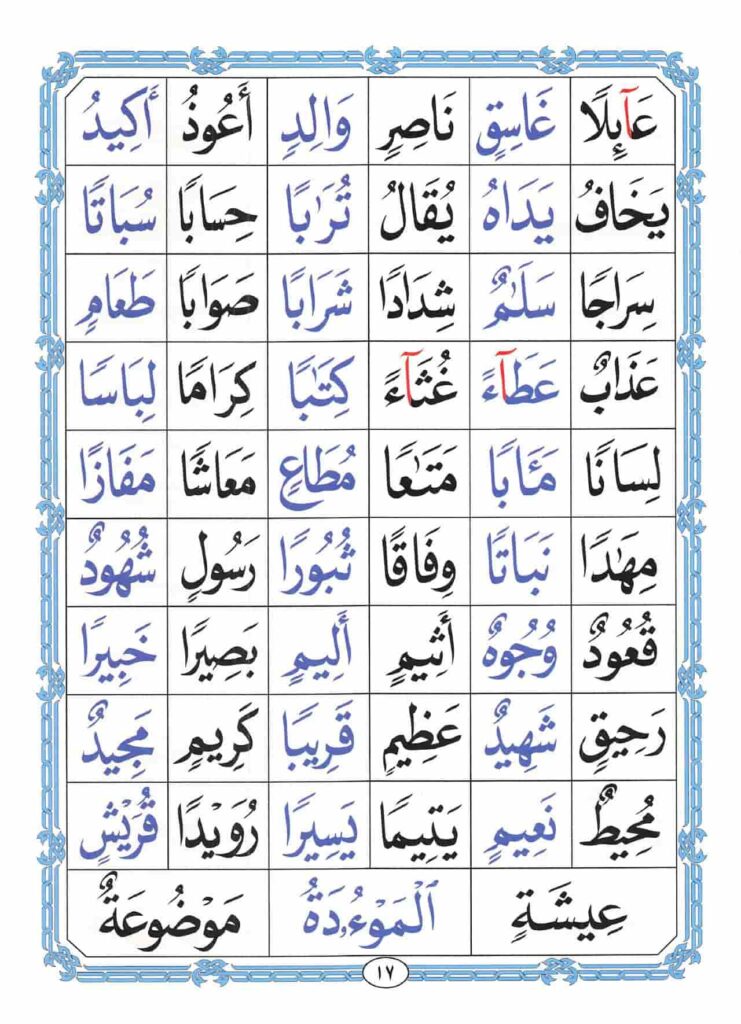 عَآئِلًا غَاسِقٍ نَاصِرٍ وَالِدٍ أَعُوذُ أَكِيدُ
يَخَافُ يَدَاهُ يُقَالُ تُرَٰبًا حِسَابًا سُبَاتًا
سِرَاجًا سَلَٰمٌ شِدَادًا شَرَابًا صَوَابًا طَعَامٍ
عَذَابٌ عَطَآءً غُثَآءً كِتَٰبًا كِرَامًا لِبَاسًا
لِسَانًا مَـَٔابًا مَتَٰعًا مُطَاعٍ مَعَاشًا مَفَازًا
مِهَٰدًا نَبَاتًا وِفَاقًا ثُبُورًا رَسُولٍ شُهُودٌ
قُعُودٌ وُجُوهٌ أَثِيمٍ أَلِيمٍ بَصِيرًا خَبِيرًا
رَحِيقٍ شَهِيدٌ عَظِيمٍ قَرِيبًا كَرِيمٍ مَجِيدٌ
مُحِيطٌ نَعِيمٍ يَتِيمًا يَسِيرًا رُوَيْدًا قُرَيْشٍ
عِيشَةٍ ٱلْمَوْءُۥدَةُ مَوْضُوعَةٌ
١٧